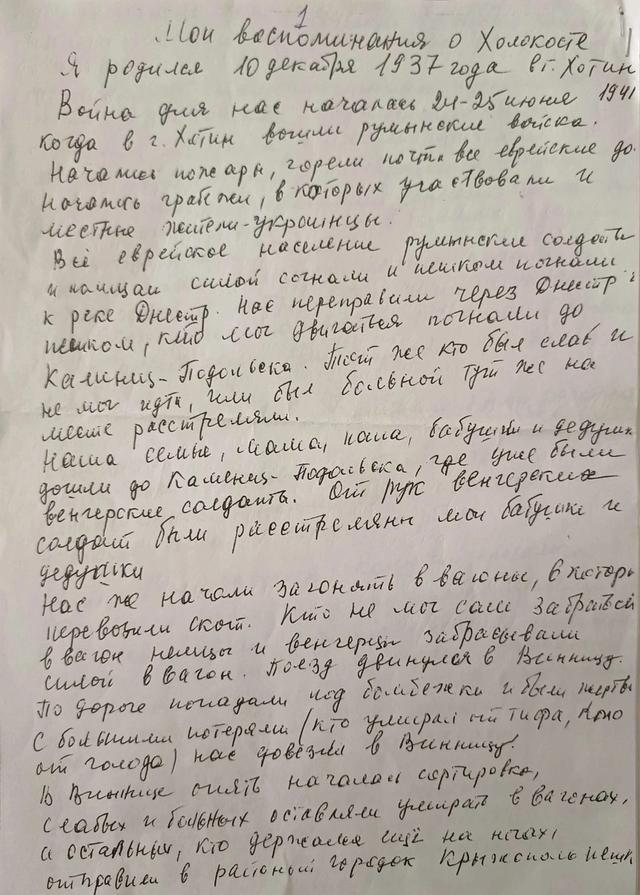 1
Мои воспоминания о Холокосте
Я родился 10 декабря 1937 года в г. Хотин
Война для нас началась 24-25 июня 1941
когда в г. Хотин вошли румынские войска.
Начались пожары, горели почти все еврейские до
Начались грабежи, в которых участвовали и
местные жители-украинцы.
Всё еврейское население румынские солдаты
и полицаи силой согнали и пешком погнали
к реке Днестр. Нас переправили через Днестр и
пешком, кто мог двигаться погнали до
Каменец-Подольска. Тот же кто был слаб и
не мог идти, или был больной тут же на
месте расстреляли.
Наша семья, мама, папа, бабушки и дедушки
дошли до Каменец-Подольска, где уже были
венгерские солдаты. От рук венгерских
солдат были расстреляны мои бабушки и
дедушки
Нас же начали загонять в вагоны, в которы
перевозили скот. Кто не мог сам забраться
в вагон немцы и венгерцы забрасывали
силой в вагон. Поезд двинулся в Винницу.
По дороге попадали под бомбежки и были жертвы
С большими потерями (кто умирал от тифа, кто
от голода) нас довезли в Винницу.
В Виннице опять началась сортировка,
слабых и больных оставляли умирать в вагонах,
а остальных, кто держался ещё на ногах,
отправили в районый городок Крыжополь пешк